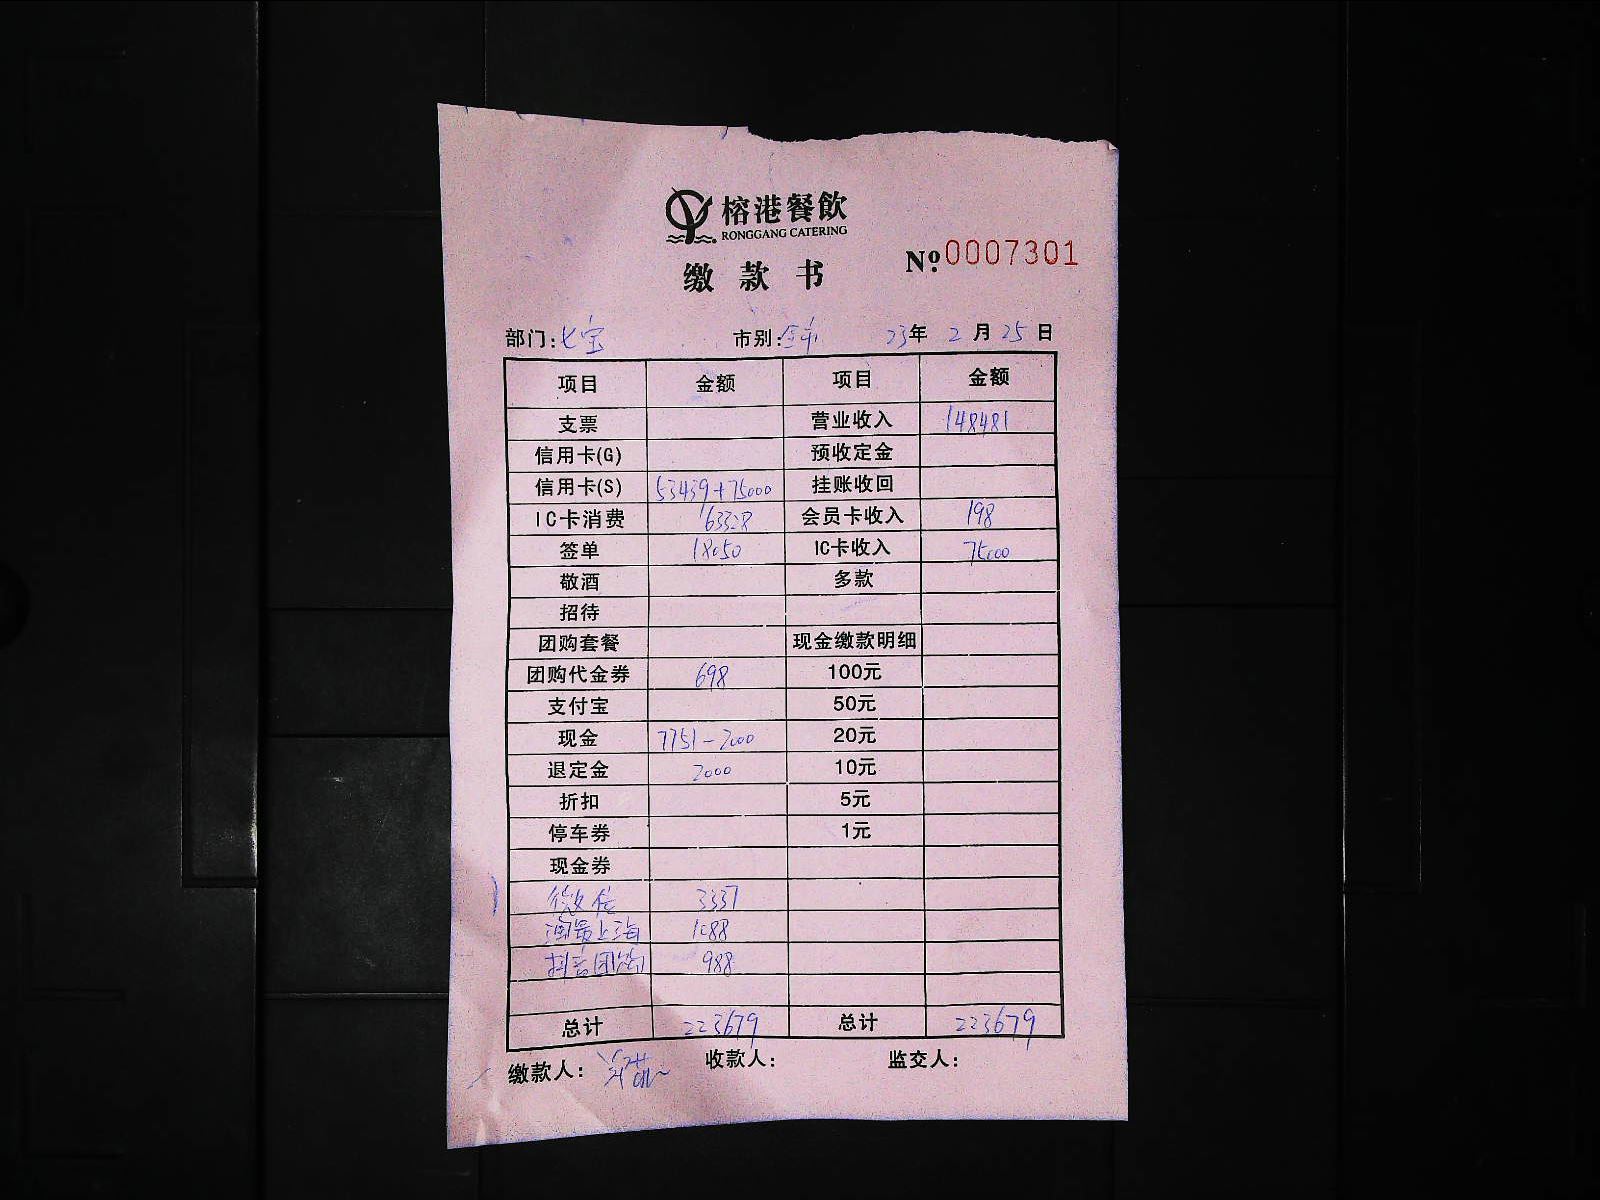 榕港餐飲
RONGGANG CATERING
缴款书
№:0007301
部门:七宝 市别:全市 23年 2月25日
项目 金额 项目 金额
支票 营业收入 148481
信用卡(G) 预收定金
信用卡(S) 53439+75000 挂账收回
IC卡消费 63328 会员卡收入 198
签单 18050 IC卡收入 75000
敬酒 多款
招待
团购套餐 现金缴款明细
团购代金券 698 100元
支付宝 50元
现金 7751-2000 20元
退定金 2000 10元
折扣 5元
停车券 1元
现金券
微信 3337
上海 1088
抖音团购 988
总计 223679 总计 223679
缴款人: 收款人: 监交人: